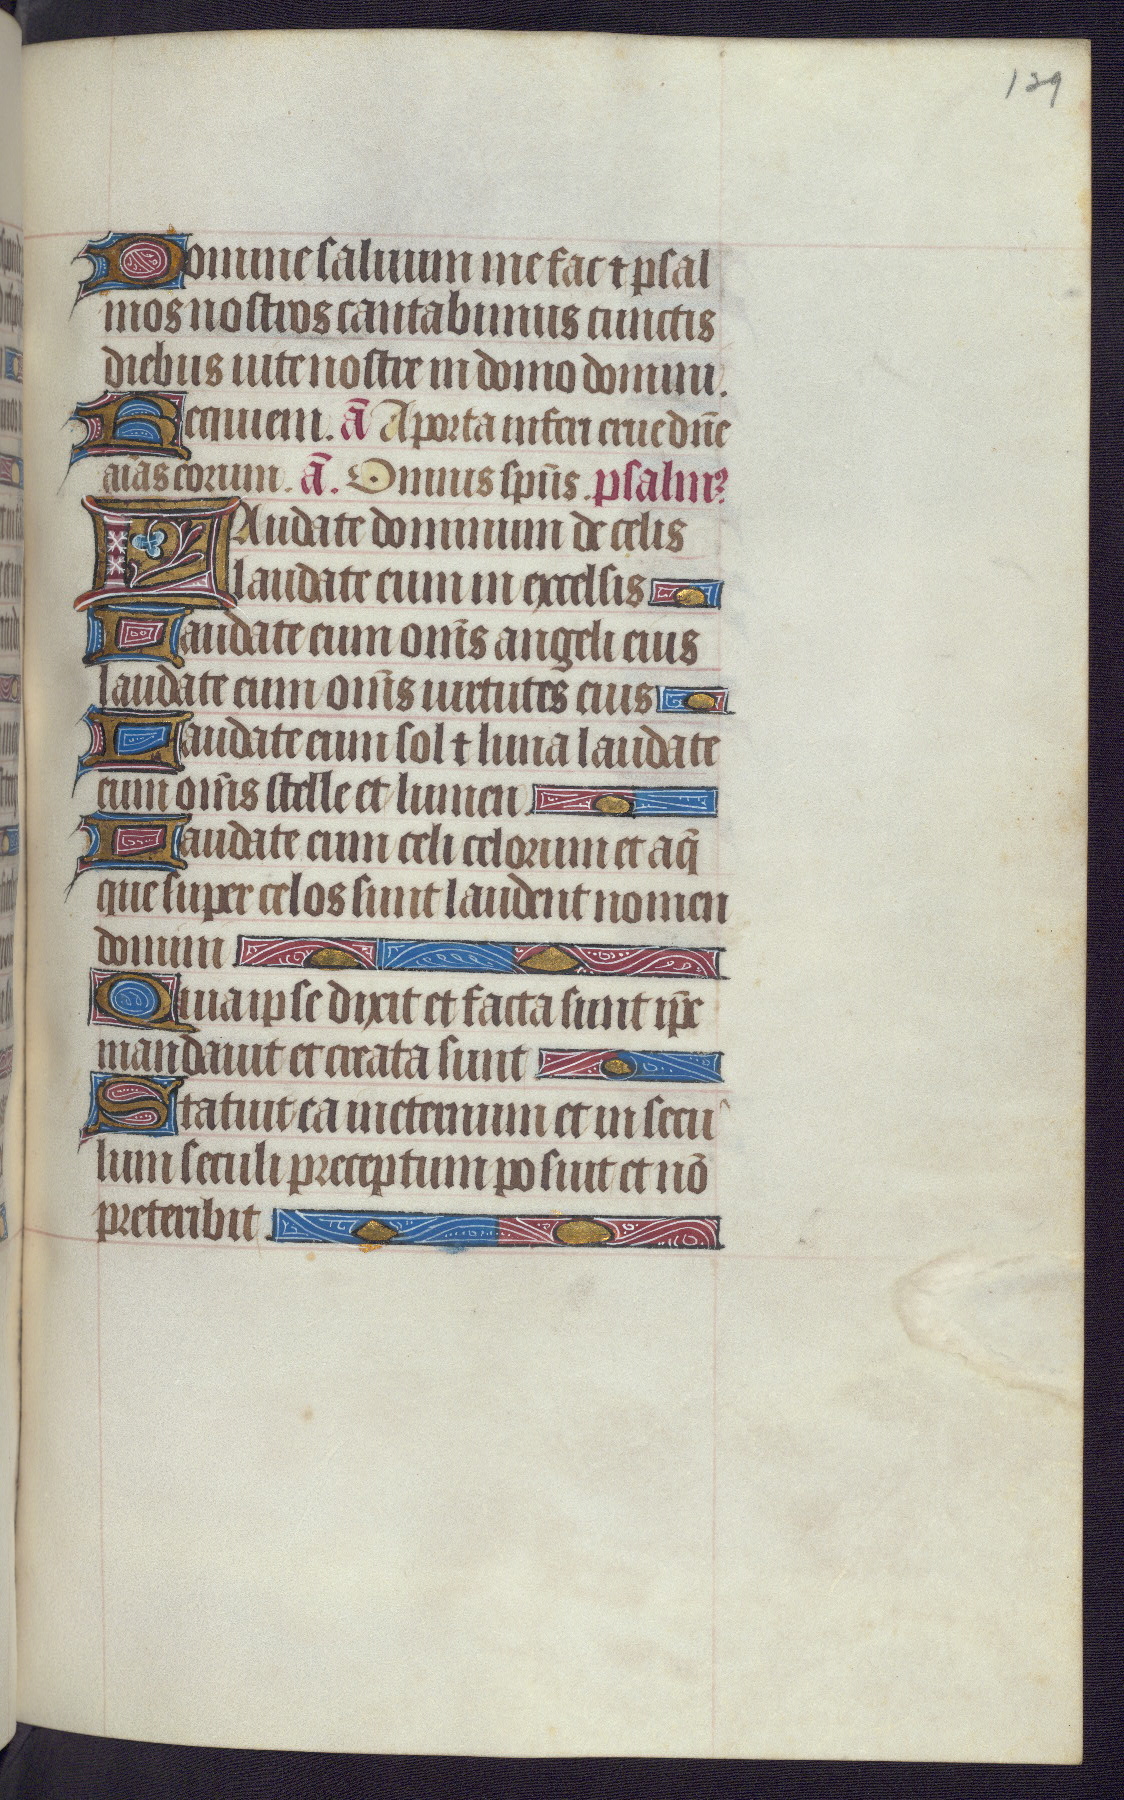 129
Domine saluum me fac ⁊ psal
mos nostros cantabimus cunctis
diebus uite nostre in domo domini.
Requiem. ā A porta inferi erue dn̄e
aīas eorum. ā. Omnis sp̄us. psalmꝰ
Laudate dominum de celis
laudate eum in excelsis
Laudate eum om̄s angeli eius
laudate eum om̄s uirtutes eius
Laudate eum sol ⁊ luna laudate
eum om̄s stelle et lumen
Laudate eum celi celorum et aq̄
que super celos sunt laudent nomen
domini
Quia ipse dixit et facta sunt ip̄e
mandauit et creata sunt
Statuit ea in eternum et in secu
lum seculi preceptum posuit et nō
preteribit